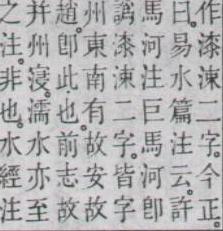 作漆涑二字。今正。
日。易水篇注云。許
馬河注巨馬河即
譌漆涑二字。皆字
州東南有故安故
趙。即此也。前志故
并州濅。濡水亦至
之注。非也。水經注